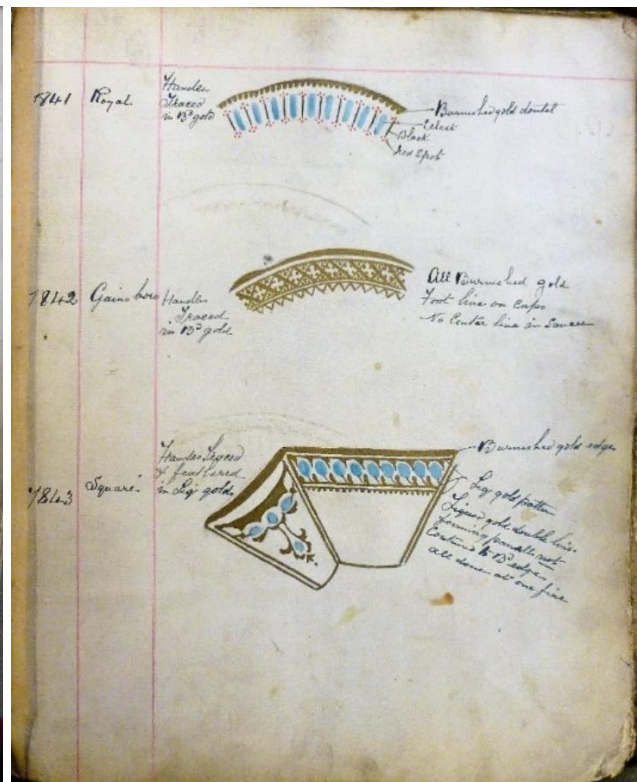 7841 Royal
Handles
Traced
in Bd gold
Burnished gold dontel
Black
Red Spot
7842
Handles
Traced
in Bd gold
All Burnished gold
Foot line on cups
No Center line in Saucers
7843 Square
Handles Traced
& feathered
in Liq gold
Burnished gold edge
Liq gold pattern
Liquid gold double lines
forming panels not
Bd edge
all done at one fire